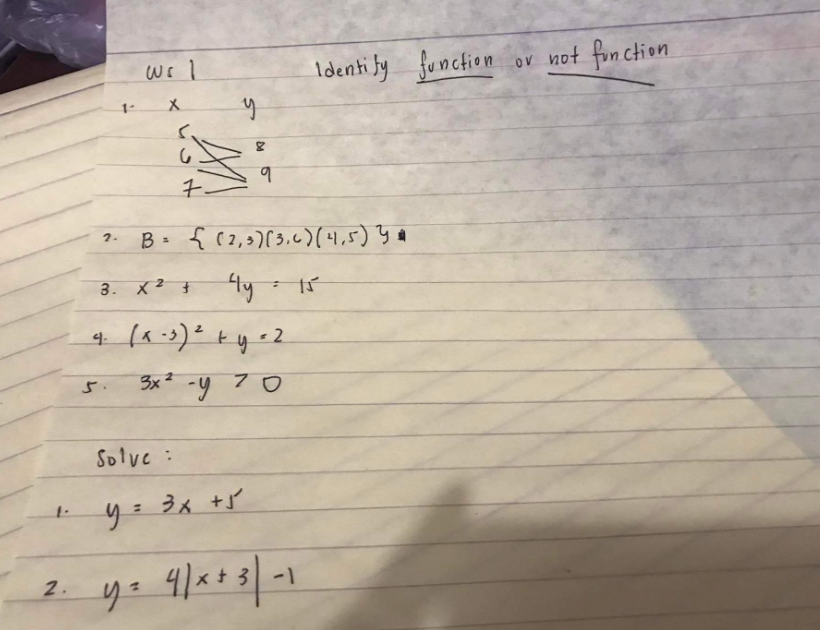 WS 1 Identify function or not function
1. x y
5
8
6
9
7
2. B = { (2,3)(3,6)(4,5) }
3. x² + 4y = 15
4. (x-3)² + y = 2
5. 3x² - y > 0
Solve :
1. y = 3x + 5
2. y = 4|x + 3| - 1